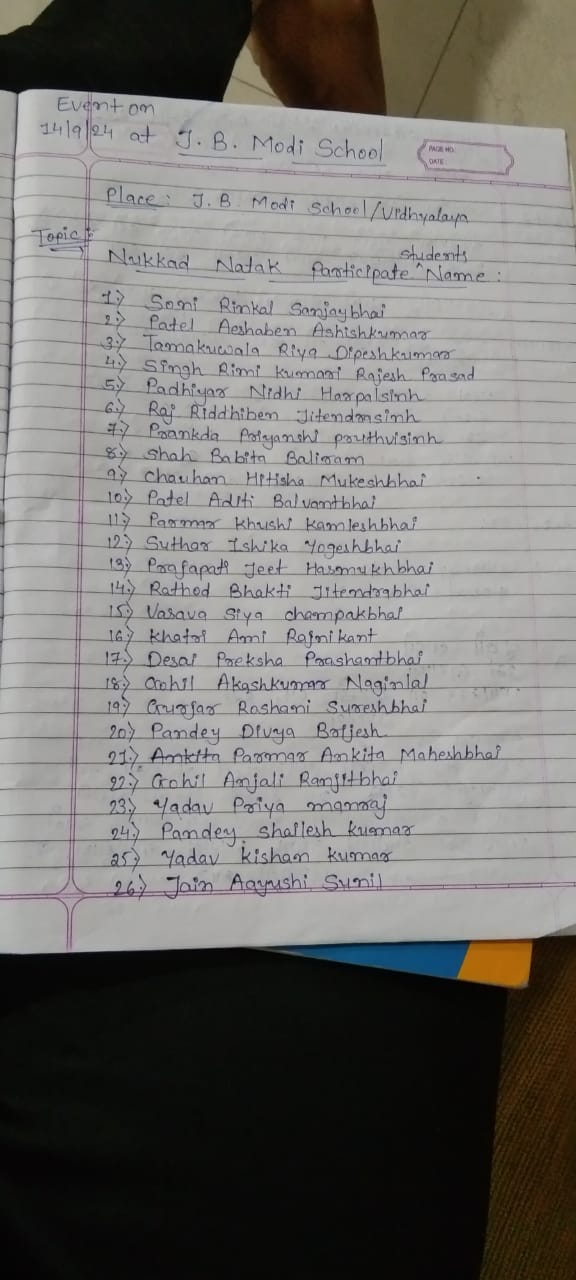 Event on
14/9/24 at J. B. Modi School
PAGE NO.
DATE
Place: J. B Modi School/Vidhyalaya
Topic:
Nukkad Natak Participate ^ students Name :
1) Soni Rinkal Sanjaybhai
2) Patel Aeshaben Ashishkumar
3) Tamakuwala Riya Dipeshkumar
4) Singh Rimi Kumari Rajesh Prasad
5) Padhiyar Nidhi Harpalsinh
6) Raj Riddhiben Jitendrasinh
7) Prankda Priyanshi pruthvisinh
8) Shah Babita Baliram
9) Chauhan Hitisha Mukeshbhai
10) Patel Aditi Balvantbhai
11) Parmar Khushi Kamleshbhai
12) Suthar Ishika Yogeshbhai
13) Prajapati Jeet Hasmukhbhai
14) Rathod Bhakti Jitendrabhai
15) Vasava Siya champakbhai
16) Khatri Ami Rajnikant
17) Desai Preksha Prashantbhai
18) Gohil Akashkumar Naginlal
19) Gurjar Roshani Sureshbhai
20) Pandey Divya Brijesh
21) Ankita Parmar Ankita Maheshbhai
22) Gohil Anjali Ranjitbhai
23) Yadav Priya manraj
24) Pandey Shailesh kumar
25) Yadav kishan kumar
26) Jain Aayushi Sunil